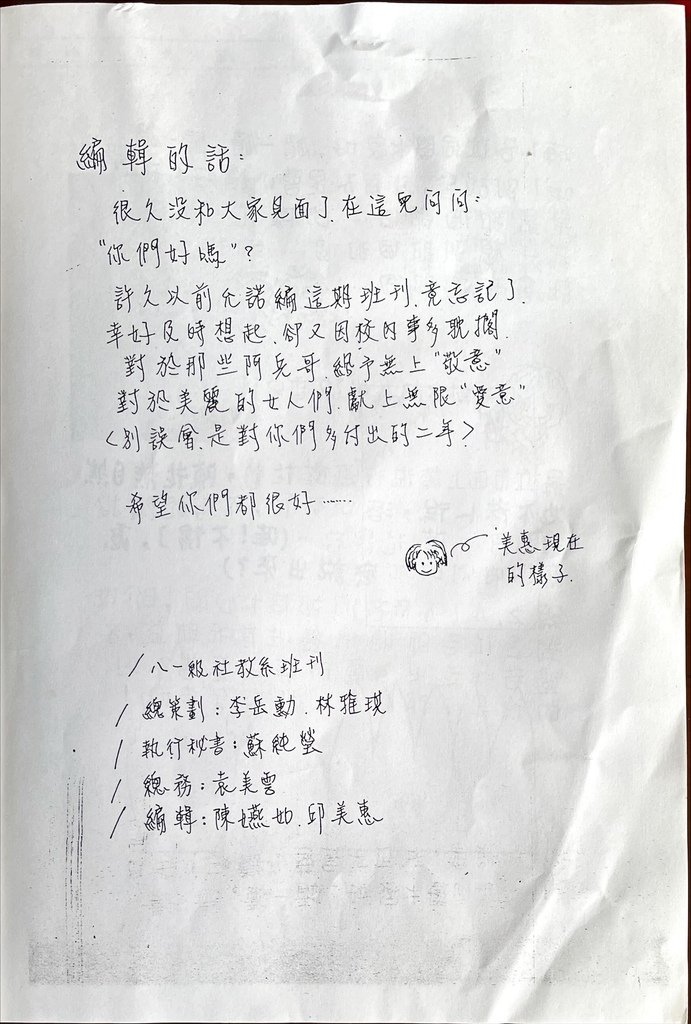 編輯的話：
很久没和大家見面了.在這兒问问：
"你們好嗎"？
許久以前允諾編這期班刊.竟忘記了.
幸好及時想起.卻又因校内事多耽擱.
對於那些阿兵哥.給予無上"敬意"
對於美麗的女人們.獻上無限"愛意"
<別誤會.是對你們多付出的二年>
希望你們都很好……
美惠現在
的樣子.
/八一級社教系班刊
/總策劃：李岳勳.林雅琪
/執行秘書：蘇純瑩
/總務：袁美雲
/編輯：陳嬿如.邱美惠